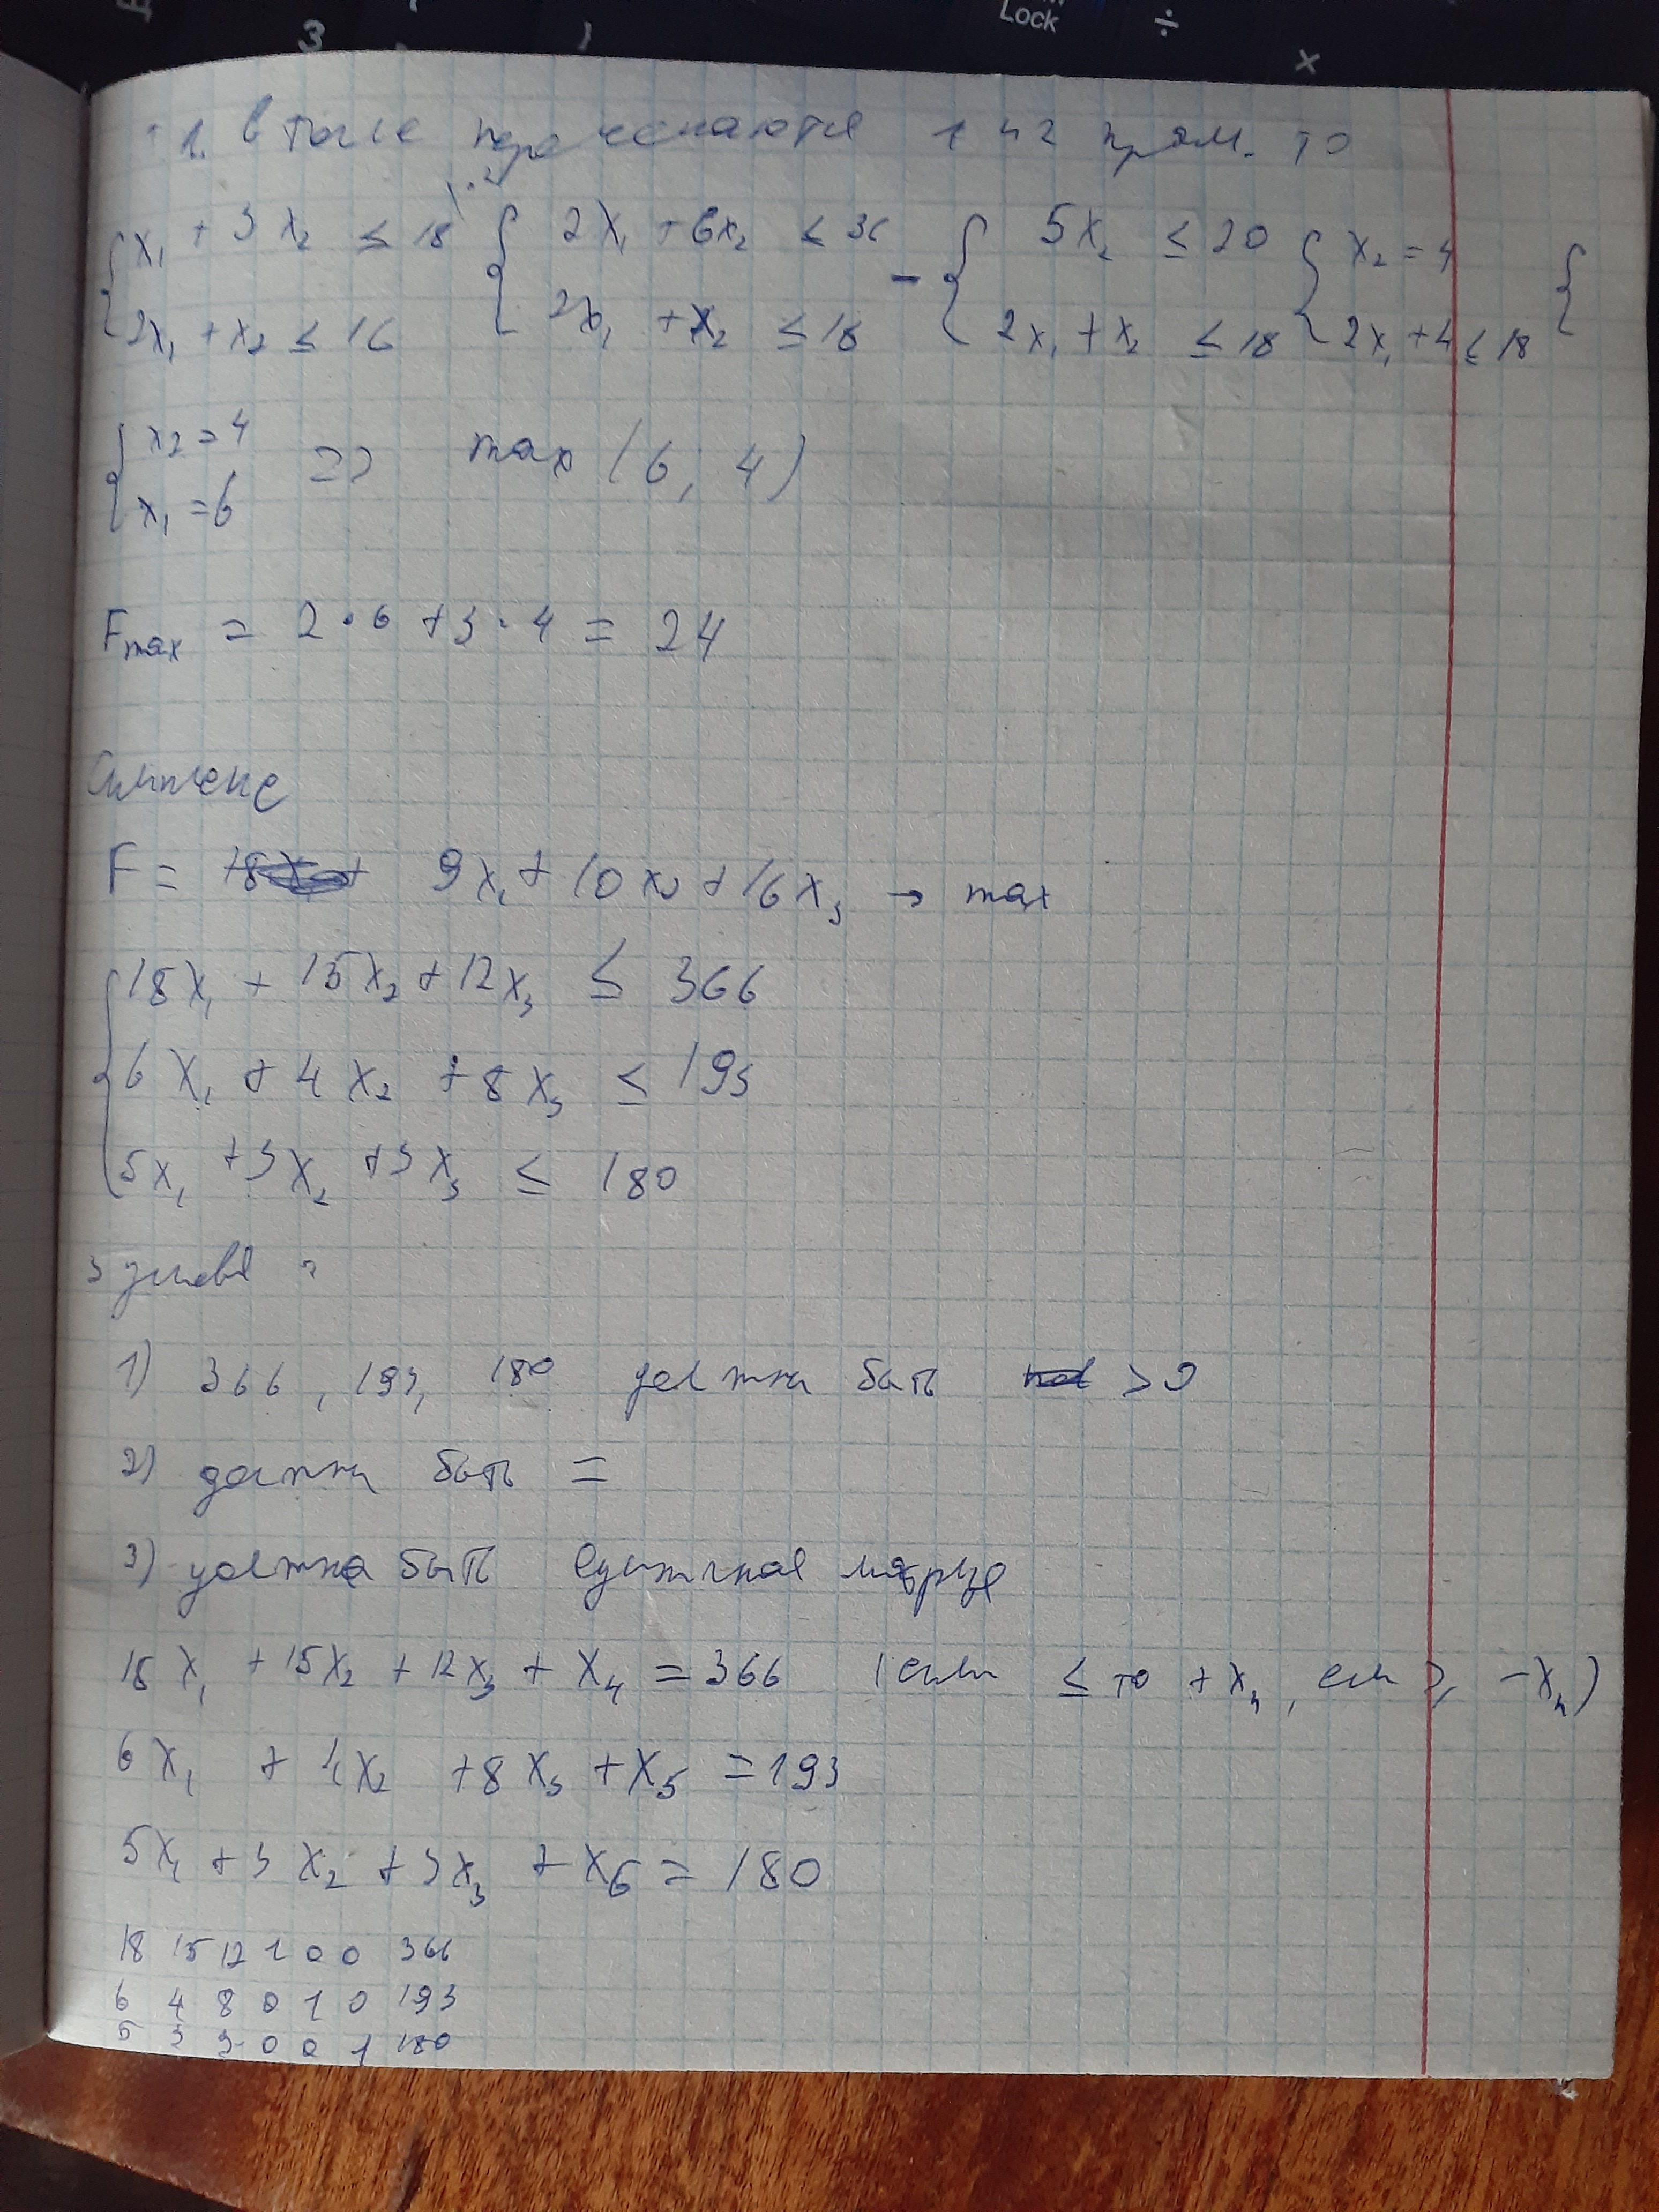 Lock
÷
3
×
1. В точке пересекаются 1 и 2 прям. то
{ x₁ + 3x₂ ≤ 18 { 2x₁ + 6x₂ ≤ 36 - { 5x₂ ≤ 20 { x₂ = 4 {
2x₁ + x₂ ≤ 16 2x₁ + x₂ ≤ 16 2x₁ + x₂ ≤ 18 2x₁ + 4 ≤ 18
{ x₂ = 4 => max (6; 4)
x₁ = 6
Fmax = 2·6 + 3·4 = 24
F = 9x₁ + 10x₂ + 16x₃ → max
{ 18x₁ + 15x₂ + 12x₃ ≤ 366
6x₁ + 4x₂ + 8x₃ ≤ 193
5x₁ + 3x₂ + 3x₃ ≤ 180
3 условия
1) 366, 193, 180 должны быть > 0
2) должны быть =
3) должна быть единичная матрица
18x₁ + 15x₂ + 12x₃ + x₄ = 366 (если ≤ то + xₙ, если ≥, - xₙ)
6x₁ + 4x₂ + 8x₃ + x₅ = 193
5x₁ + 3x₂ + 3x₃ + x₆ = 180
18 15 12 1 0 0 366
6 4 8 0 1 0 193
5 3 3 0 0 1 180